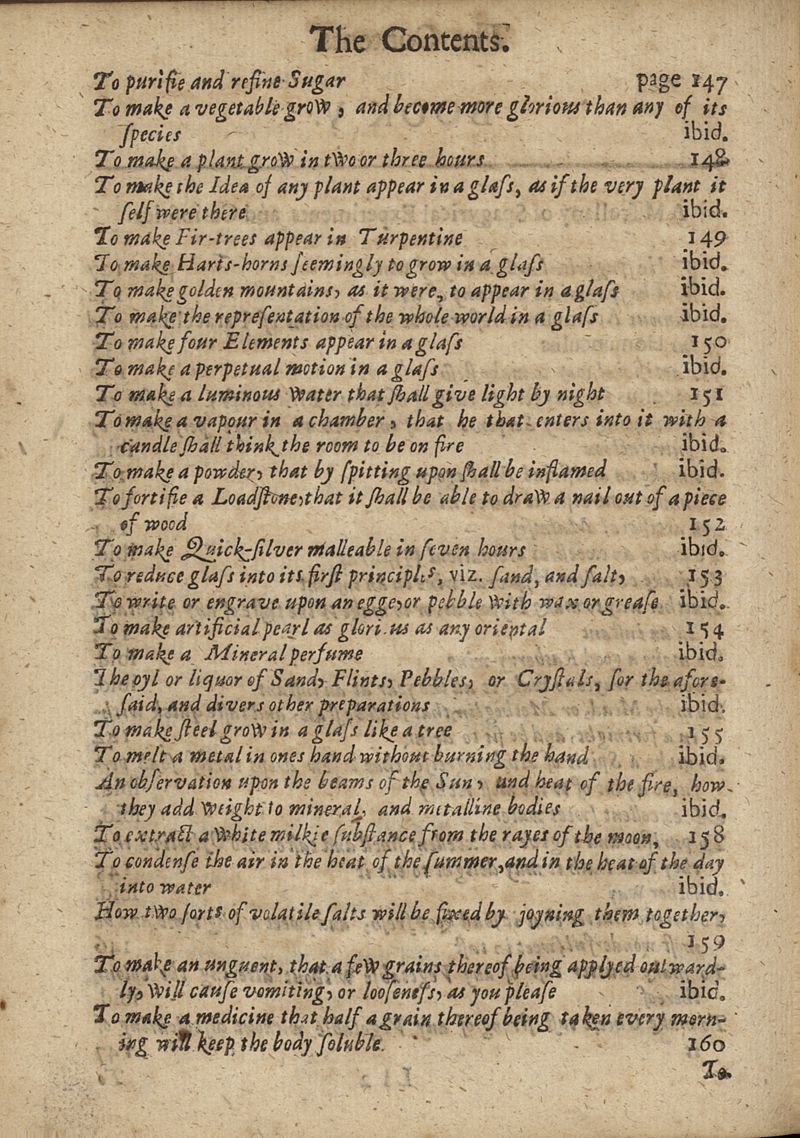 The Contents.
To purifie and refine Sugar page 147
To make a vegetable grow, and become more glorious than any of its
ſpecies ibid.
To make a plant grow in two or three hours 148
To make the Idea of any plant appear in a glaſs, as if the very plant it
ſelf were there ibid.
To make Fir-trees appear in Turpentine 149
To make Harts-horns ſeemingly to grow in a glaſs ibid.
To make golden mountains, as it were, to appear in a glaſs ibid.
To make the repreſentation of the whole world in a glaſs ibid.
To make four Elements appear in a glaſs 150
To make a perpetual motion in a glaſs ibid.
To make a luminous Water that ſhall give light by night 151
To make a vapour in a chamber, that he that enters into it with a
candle ſhall think the room to be on fire ibid.
To make a powder, that by ſpitting upon ſhall be inflamed ibid.
To fortifie a Loadſtone, that it ſhall be able to draw a nail out of a piece
of wood 152
To make Quick-ſilver malleable in ſeven hours ibid.
To reduce glaſs into its firſt principles, viz. ſand, and ſalt, 153
To write or engrave upon an egge, or pebble with wax or greaſe ibid.
To make artificial pearl as glori.us as any oriental 154
To make a Mineral perfume ibid.
The oyl or liquor of Sand, Flints, Pebbles, or Cryſtals, for the afore-
ſaid, and divers other preparations ibid.
To make ſteel grow in a glaſs like a tree 155
To melt a metal in ones hand without burning the hand ibid.
An obſervation upon the beams of the Sun, and heat of the fire, how
they add weight to mineral, and metalline bodies ibid.
To extract a white milkie ſubſtance from the rayes of the moon, 158
To condenſe the air in the heat of the ſummer, and in the heat of the day
into water ibid.
How two ſorts of volatile ſalts will be fixed by joyning them together,
159
To make an unguent, that a few grains thereof being applyed outward-
ly, will cauſe vomiting, or looſeneſs, as you pleaſe ibid.
To make a medicine that half a grain thereof being taken every morn-
ing will keep the body ſoluble. 160
To